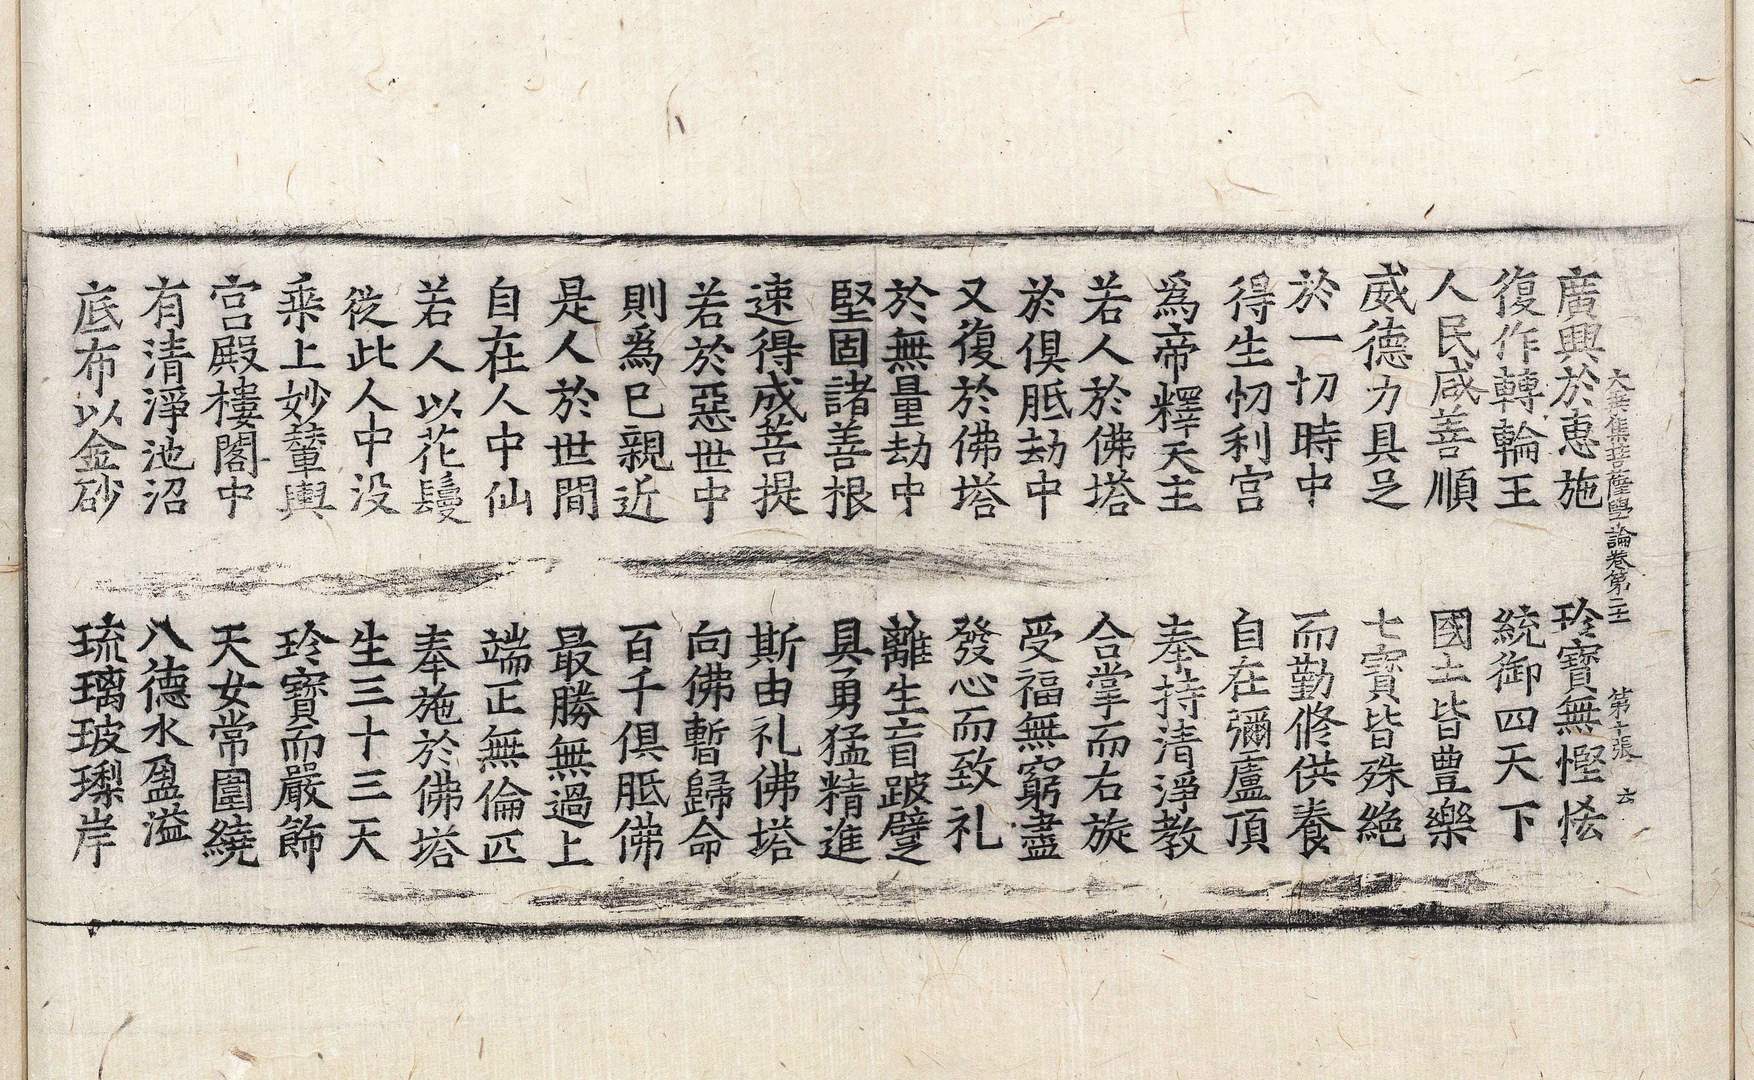 大乘集菩薩學論卷第 第十張 云
廣興於惠施 珍寶無慳悋
復作轉輪王 統御四天下
人民咸善順 國土皆豊樂
威德力具足 七寶皆殊絶
於一切時中 而勤修供養
得生忉利宮 自在彌盧頂
爲帝釋天主 奉持清淨教
若人於佛塔 合掌而右旋
於俱胝劫中 受福無窮盡
又復於佛塔 發心而致礼
於無量劫中 離生盲跛躄
堅固諸善根 具勇猛精進
速得成菩提 斯由礼佛塔
若於惡世中 向佛暫歸命
則爲已親近 百千俱胝佛
是人於世間 最勝無過上
自在人中仙 端正無倫匹
若人以花鬘 奉施於佛塔
從此人中没 生三十三天
乘上妙輦輿 珍寶而嚴飾
宮殿樓閣中 天女常圍繞
有清淨池沼 八德水盈溢
底布以金砂 琉璃玻瓈岸